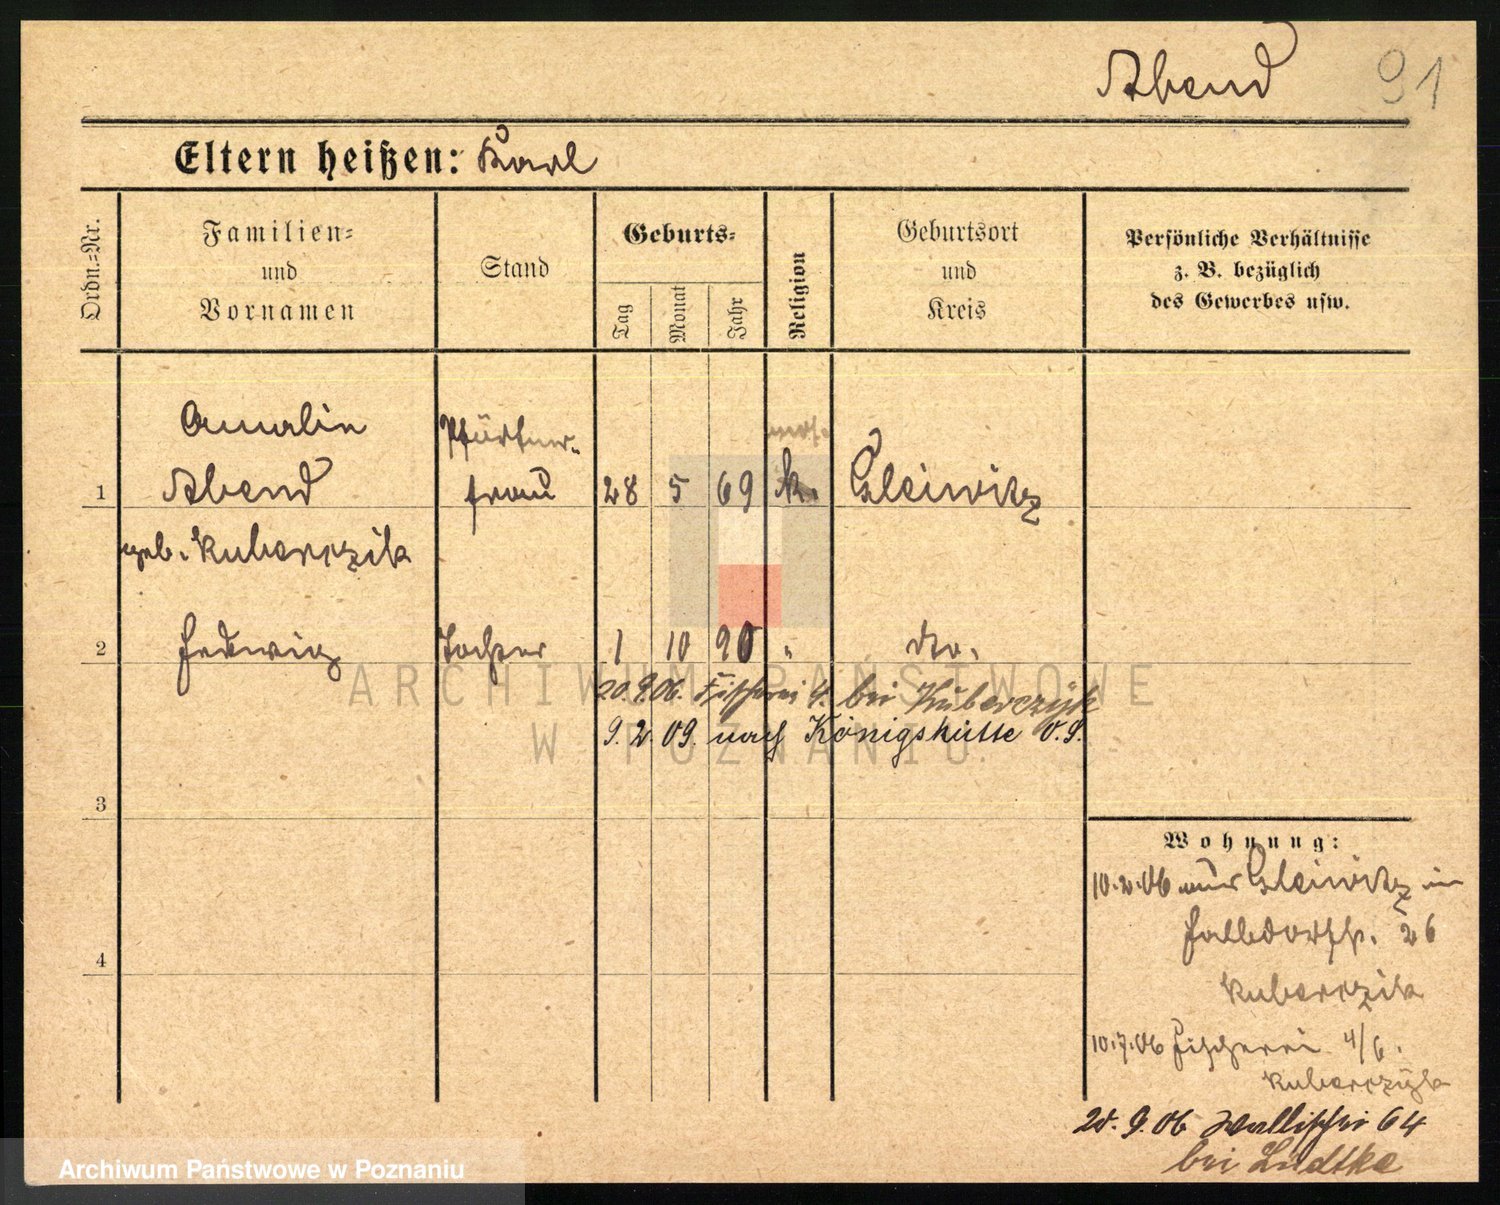 Abend 91
Eltern heißen: Karl
Ordn.=Nr.
Familien=
und
Vornamen
Stand
Geburts=
Tag
Monat
Jahr
Religion
Geburtsort
und
Kreis
Persönliche Verhältnisse
z. B. bezüglich
des Gewerbes usw.
Amalie Pförtner-
1 Abend frau 28 5 69 k. Gleiwitz
geb. Kuberczik
2 Hedwig Tochter 1 10 90 " do.
20.9.06. Fischerei 4. bei Kuberczyk
9. 2. 09. nach Königshütte O.S.
3
4
Wohnung:
10.2.06 aus Gleiwitz in
Halbdorfstr. 26
Kuberczik
10.7.06 Fischerei 4/6.
Kuberczyk
20. 9. 06 Wallischei 64
bei Lüdtke
ARCHIWUM PAŃSTWOWE
W POZNANIU
Archiwum Państwowe w Poznaniu